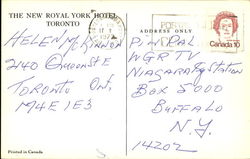 THE NEW ROYAL YORK HOTEL
TORONTO
ADDRESS ONLY
Canada 10
HELEN McKINNON
2140 QUEEN ST E
TORONTO Ont.
M4E 1E3
PIN PAL
WGR TV
NIAGARA Sq station
Box 5000
BUFFALO
N.Y.
14202
Printed in Canada